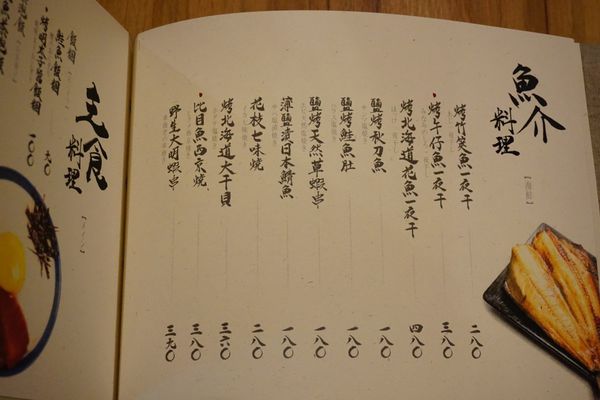 魚介料理
【海鮮】
烤竹筴魚一夜干 二八〇
烤午仔魚一夜干 三八〇
烤北海道花魚一夜干 四八〇
鹽烤秋刀魚 一八〇
鹽烤鮭魚肚 一八〇
鹽烤天然草蝦串 一八〇
薄鹽漬日本鯖魚 一八〇
花枝七味燒 二八〇
烤北海道大干貝 三六〇
比目魚西京燒 三八〇
野生大明蝦串 三九〇
主食料理
飯糰
鮭魚飯糰 九〇
烤明太子醬飯糰 一〇〇